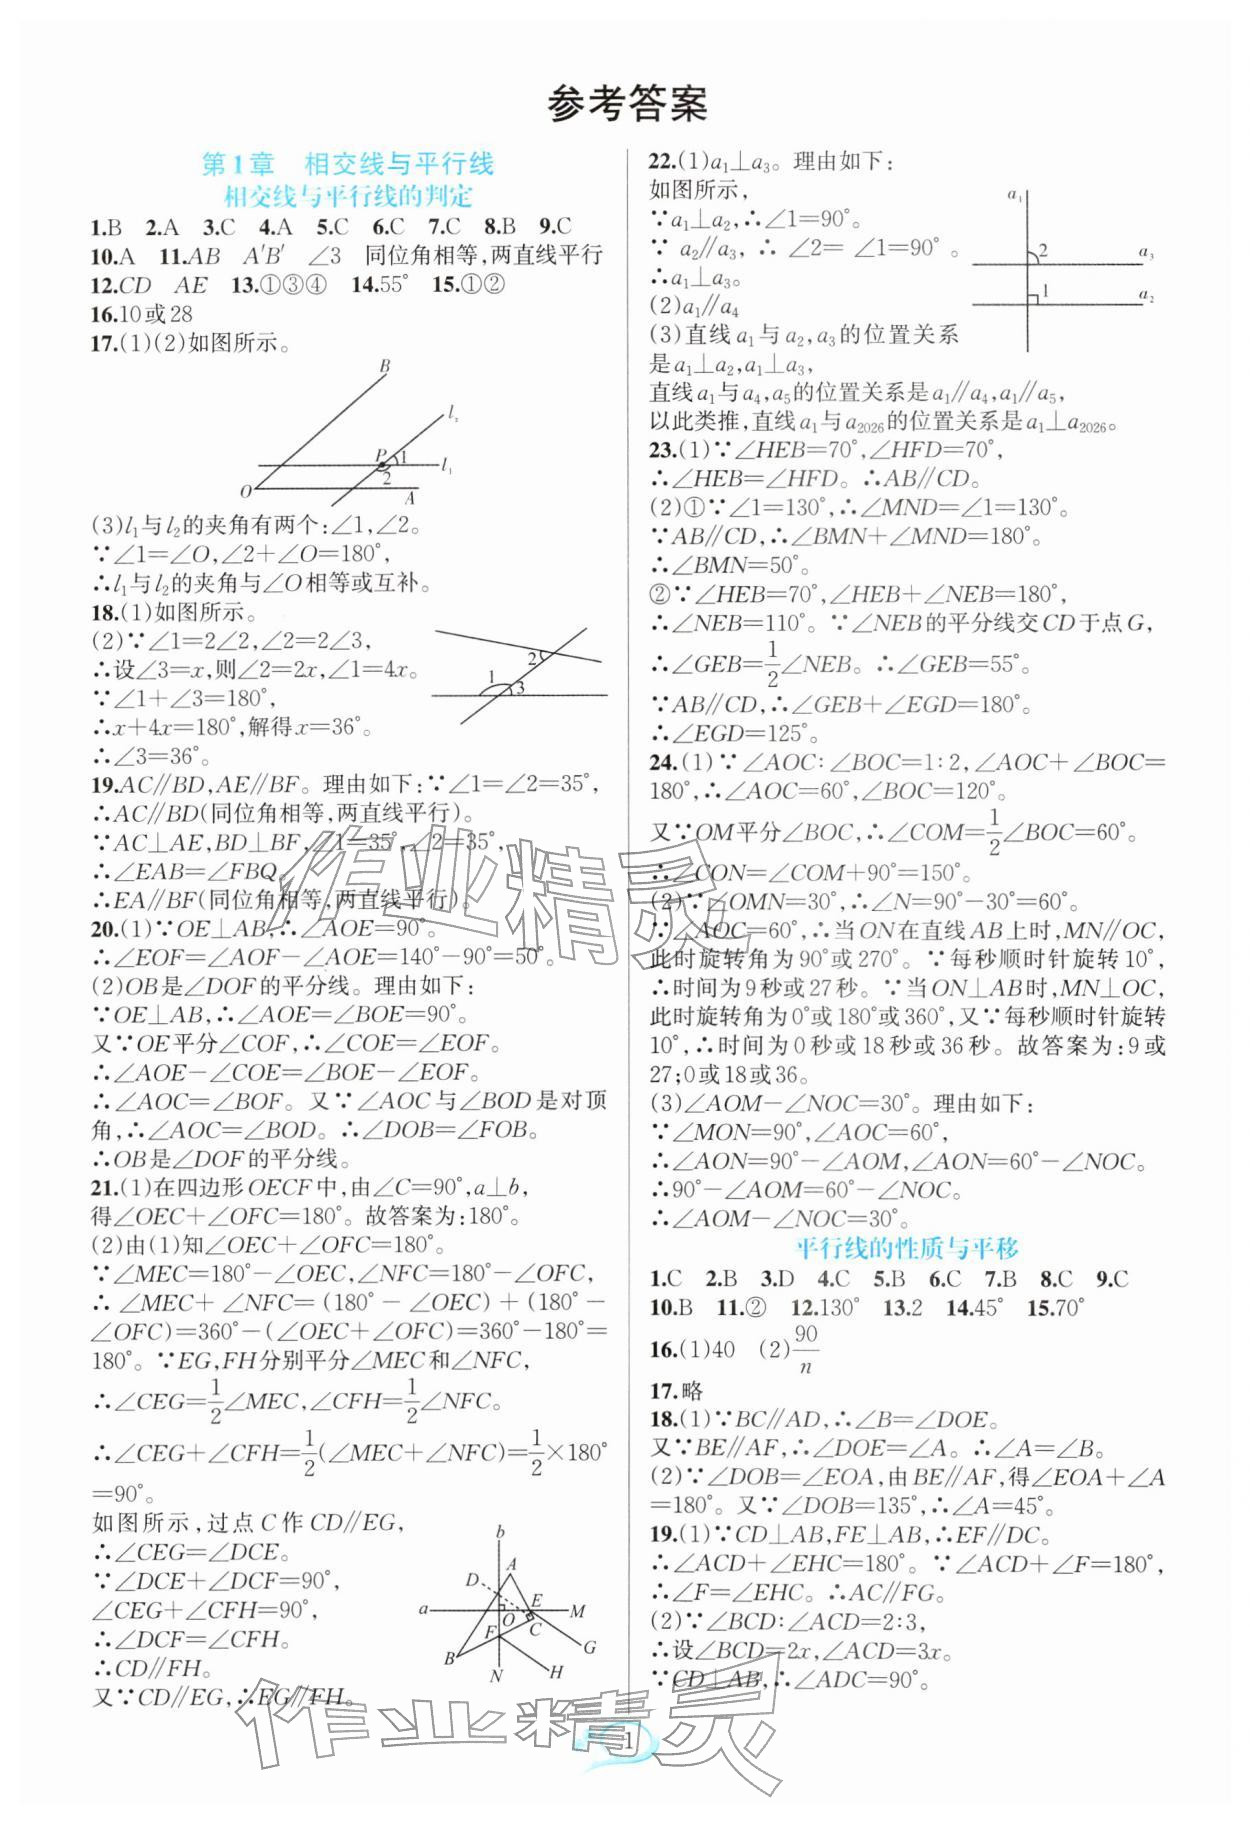 参考答案
第1章　相交线与平行线
相交线与平行线的判定
1.B　2.A　3.C　4.A　5.C　6.C　7.C　8.B　9.C
10.A　11.AB　A′B′　∠3　同位角相等,两直线平行
12.CD　AE　13.①③④　14.55°　15.①②
16.10或28
17.(1)(2)如图所示。
B
l₂
P
1
l₁
2
O
A
(3)l₁与l₂的夹角有两个:∠1,∠2。
∵∠1=∠O,∠2+∠O=180°,
∴l₁与l₂的夹角与∠O相等或互补。
18.(1)如图所示。
(2)∵∠1=2∠2,∠2=2∠3,
∴设∠3=x,则∠2=2x,∠1=4x。
∵∠1+∠3=180°,
∴x+4x=180°,解得x=36°。
∴∠3=36°。
2
1
3
19.AC∥BD,AE∥BF。理由如下:∵∠1=∠2=35°,
∴AC∥BD(同位角相等,两直线平行)。
∵AC⊥AE,BD⊥BF,∠1=35°,∠2=35°,
∴∠EAB=∠FBQ。
∴EA∥BF(同位角相等,两直线平行)。
20.(1)∵OE⊥AB,∴∠AOE=90°。
∴∠EOF=∠AOF−∠AOE=140°−90°=50°。
(2)OB是∠DOF的平分线。理由如下:
∵OE⊥AB,∴∠AOE=∠BOE=90°。
又∵OE平分∠COF,∴∠COE=∠EOF。
∴∠AOE−∠COE=∠BOE−∠EOF。
∴∠AOC=∠BOF。又∵∠AOC与∠BOD是对顶
角,∴∠AOC=∠BOD。∴∠DOB=∠FOB。
∴OB是∠DOF的平分线。
21.(1)在四边形OECF中,由∠C=90°,a⊥b,
得∠OEC+∠OFC=180°。故答案为:180°。
(2)由(1)知∠OEC+∠OFC=180°。
∵∠MEC=180°−∠OEC,∠NFC=180°−∠OFC,
∴∠MEC+∠NFC=(180°−∠OEC)+(180°−
∠OFC)=360°−(∠OEC+∠OFC)=360°−180°=
180°。∵EG,FH分别平分∠MEC和∠NFC,
∴∠CEG=1/2∠MEC,∠CFH=1/2∠NFC。
∴∠CEG+∠CFH=1/2(∠MEC+∠NFC)=1/2×180°
=90°。
如图所示,过点C作CD∥EG,
∴∠CEG=∠DCE。
∵∠DCE+∠DCF=90°,
∠CEG+∠CFH=90°,
∴∠DCF=∠CFH。
∴CD∥FH。
又∵CD∥EG,∴EG∥FH。
b
A
D
E
a
O
M
F
C
G
B
N
H
22.(1)a₁⊥a₃。理由如下:
如图所示,
∵a₁⊥a₂,∴∠1=90°。
∵a₂∥a₃,∴∠2=∠1=90°。
∴a₁⊥a₃。
(2)a₁∥a₄
(3)直线a₁与a₂,a₃的位置关系
是a₁⊥a₂,a₁⊥a₃,
a₁
2
a₃
1
a₂
直线a₁与a₄,a₅的位置关系是a₁∥a₄,a₁∥a₅,
以此类推,直线a₁与a₂₀₂₆的位置关系是a₁⊥a₂₀₂₆。
23.(1)∵∠HEB=70°,∠HFD=70°,
∴∠HEB=∠HFD。∴AB∥CD。
(2)①∵∠1=130°,∴∠MND=∠1=130°。
∵AB∥CD,∴∠BMN+∠MND=180°。
∴∠BMN=50°。
②∵∠HEB=70°,∠HEB+∠NEB=180°,
∴∠NEB=110°。∵∠NEB的平分线交CD于点G,
∴∠GEB=1/2∠NEB。∴∠GEB=55°。
∵AB∥CD,∴∠GEB+∠EGD=180°。
∴∠EGD=125°。
24.(1)∵∠AOC∶∠BOC=1∶2,∠AOC+∠BOC=
180°,∴∠AOC=60°,∠BOC=120°。
又∵OM平分∠BOC,∴∠COM=1/2∠BOC=60°。
∴∠CON=∠COM+90°=150°。
(2)∵∠OMN=30°,∴∠N=90°−30°=60°。
∵∠AOC=60°,∴当ON在直线AB上时,MN∥OC,
此时旋转角为90°或270°。∵每秒顺时针旋转10°,
∴时间为9秒或27秒。∵当ON⊥AB时,MN⊥OC,
此时旋转角为0°或180°或360°,又∵每秒顺时针旋转
10°,∴时间为0秒或18秒或36秒。故答案为:9或
27;0或18或36。
(3)∠AOM−∠NOC=30°。理由如下:
∵∠MON=90°,∠AOC=60°,
∴∠AON=90°−∠AOM,∠AON=60°−∠NOC。
∴90°−∠AOM=60°−∠NOC。
∴∠AOM−∠NOC=30°。
平行线的性质与平移
1.C　2.B　3.D　4.C　5.B　6.C　7.B　8.C　9.C
10.B　11.②　12.130°　13.2　14.45°　15.70°
16.(1)40　(2)90/n
17.略
18.(1)∵BC∥AD,∴∠B=∠DOE。
又∵BE∥AF,∴∠DOE=∠A。∴∠A=∠B。
(2)∵∠DOB=∠EOA,由BE∥AF,得∠EOA+∠A
=180°。又∵∠DOB=135°,∴∠A=45°。
19.(1)∵CD⊥AB,FE⊥AB,∴EF∥DC。
∴∠ACD+∠EHC=180°。∵∠ACD+∠F=180°,
∴∠F=∠EHC。∴AC∥FG。
(2)∵∠BCD∶∠ACD=2∶3,
∴设∠BCD=2x,∠ACD=3x。
∵CD⊥AB,∴∠ADC=90°。
作业精灵
作业精灵
1